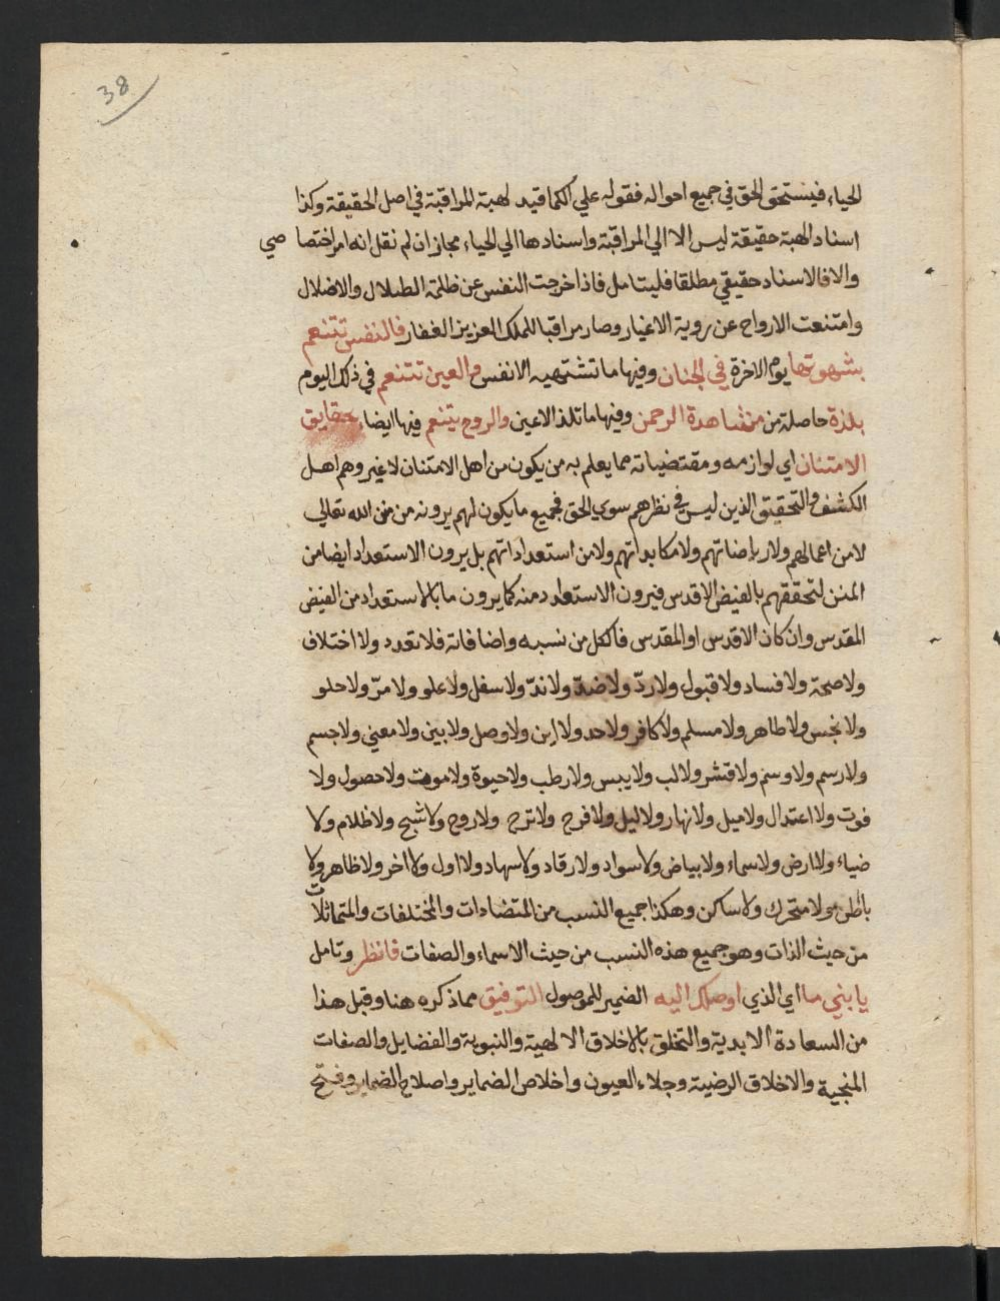 38
الحياء فيستحق الحق في جميع احواله فقوله علي الكما قيد لهبة المراقبة في اصل الحقيقة وكذا
اسناد الهبة حقيقة ليس الا الي المراقبة واسنادها الي الحياء مجاز ان لم نقل انه امر اختصا صي
والا فالاسناد حقيقي مطلقا فليتامل فاذا خرجت النفس عن ظلمة الطلال والاضلال
وامتنعت الارواح عن روية الاغيار وصار مراقبا للملك العزيز الغفار فالنفس تتنعم
بشهوتها يوم الاخرة في الجنان وفيها ما تشتهيه الانفس والعين تتنعم في ذلك اليوم
بلذة حاصلة من مشاهدة الرحمن وفيها ما تلذ الاعين والروح يتنعم فيها ايضا بحقايق
الامتنان اي لوازمه ومقتضياته مما يعلم به من يكون من اهل الامتنان لا غير وهم اهل
الكشف والتحقيق الذين ليس في نظرهم سوي الحق فجميع ما يكون لهم يرونه من منن الله تعالي
لا من اعمالهم ولا رياضاتهم ولا مكابداتهم ولا من استعداداتهم بل يرون الاستعداد ايضا من
المنن لتحققهم بالفيض الاقدس فيرون الاستعداد منه كما يرون ما بالاستعداد من الفيض
المقدس وان كان الاقدس او المقدس فالكل من نسبه واضافاته فلا تعدد ولا اختلاف
ولا صحة ولا فساد ولا قبول ولا ردّ ولا ضدّ ولا ندّ ولا سفل ولا علو ولا مرّ ولا حلو
ولا نجس ولا طاهر ولا مسلم ولا كافر ولا حد ولا اين ولا وصل ولا بين ولا معني ولا جسم
ولا رسم ولا وسم ولا قشر ولا لب ولا يبس ولا رطب ولا حيوة ولا موت ولا حصول ولا
فوت ولا اعتدال ولا ميل ولا نهار ولا ليل ولا فرح ولا ترح ولا روح ولا شبح ولا ظلام ولا
ضياء ولا ارض ولا سماء ولا بياض ولا سواد ولا رقاد ولا سهاد ولا اول ولا اخر ولا ظاهر ولا
باطن ولا متحرك ولا ساكن وهكذا جميع النسب من المتضادات والمختلفات والمتماثلات
من حيث الذات وهو جميع هذه النسب من حيث الاسماء والصفات فانظر وتامل
يا بني ما اي الذي اوصلك اليه الضمير للموصول التوفيق مما ذكره هنا وقبل هذا
من السعادة الابدية والتخلق بالاخلاق الالهية والنبوية والفضايل والصفات
المنجية والاخلاق الرضية وجلاء العيون واخلاص الضماير واصلاح الضماير وفتح